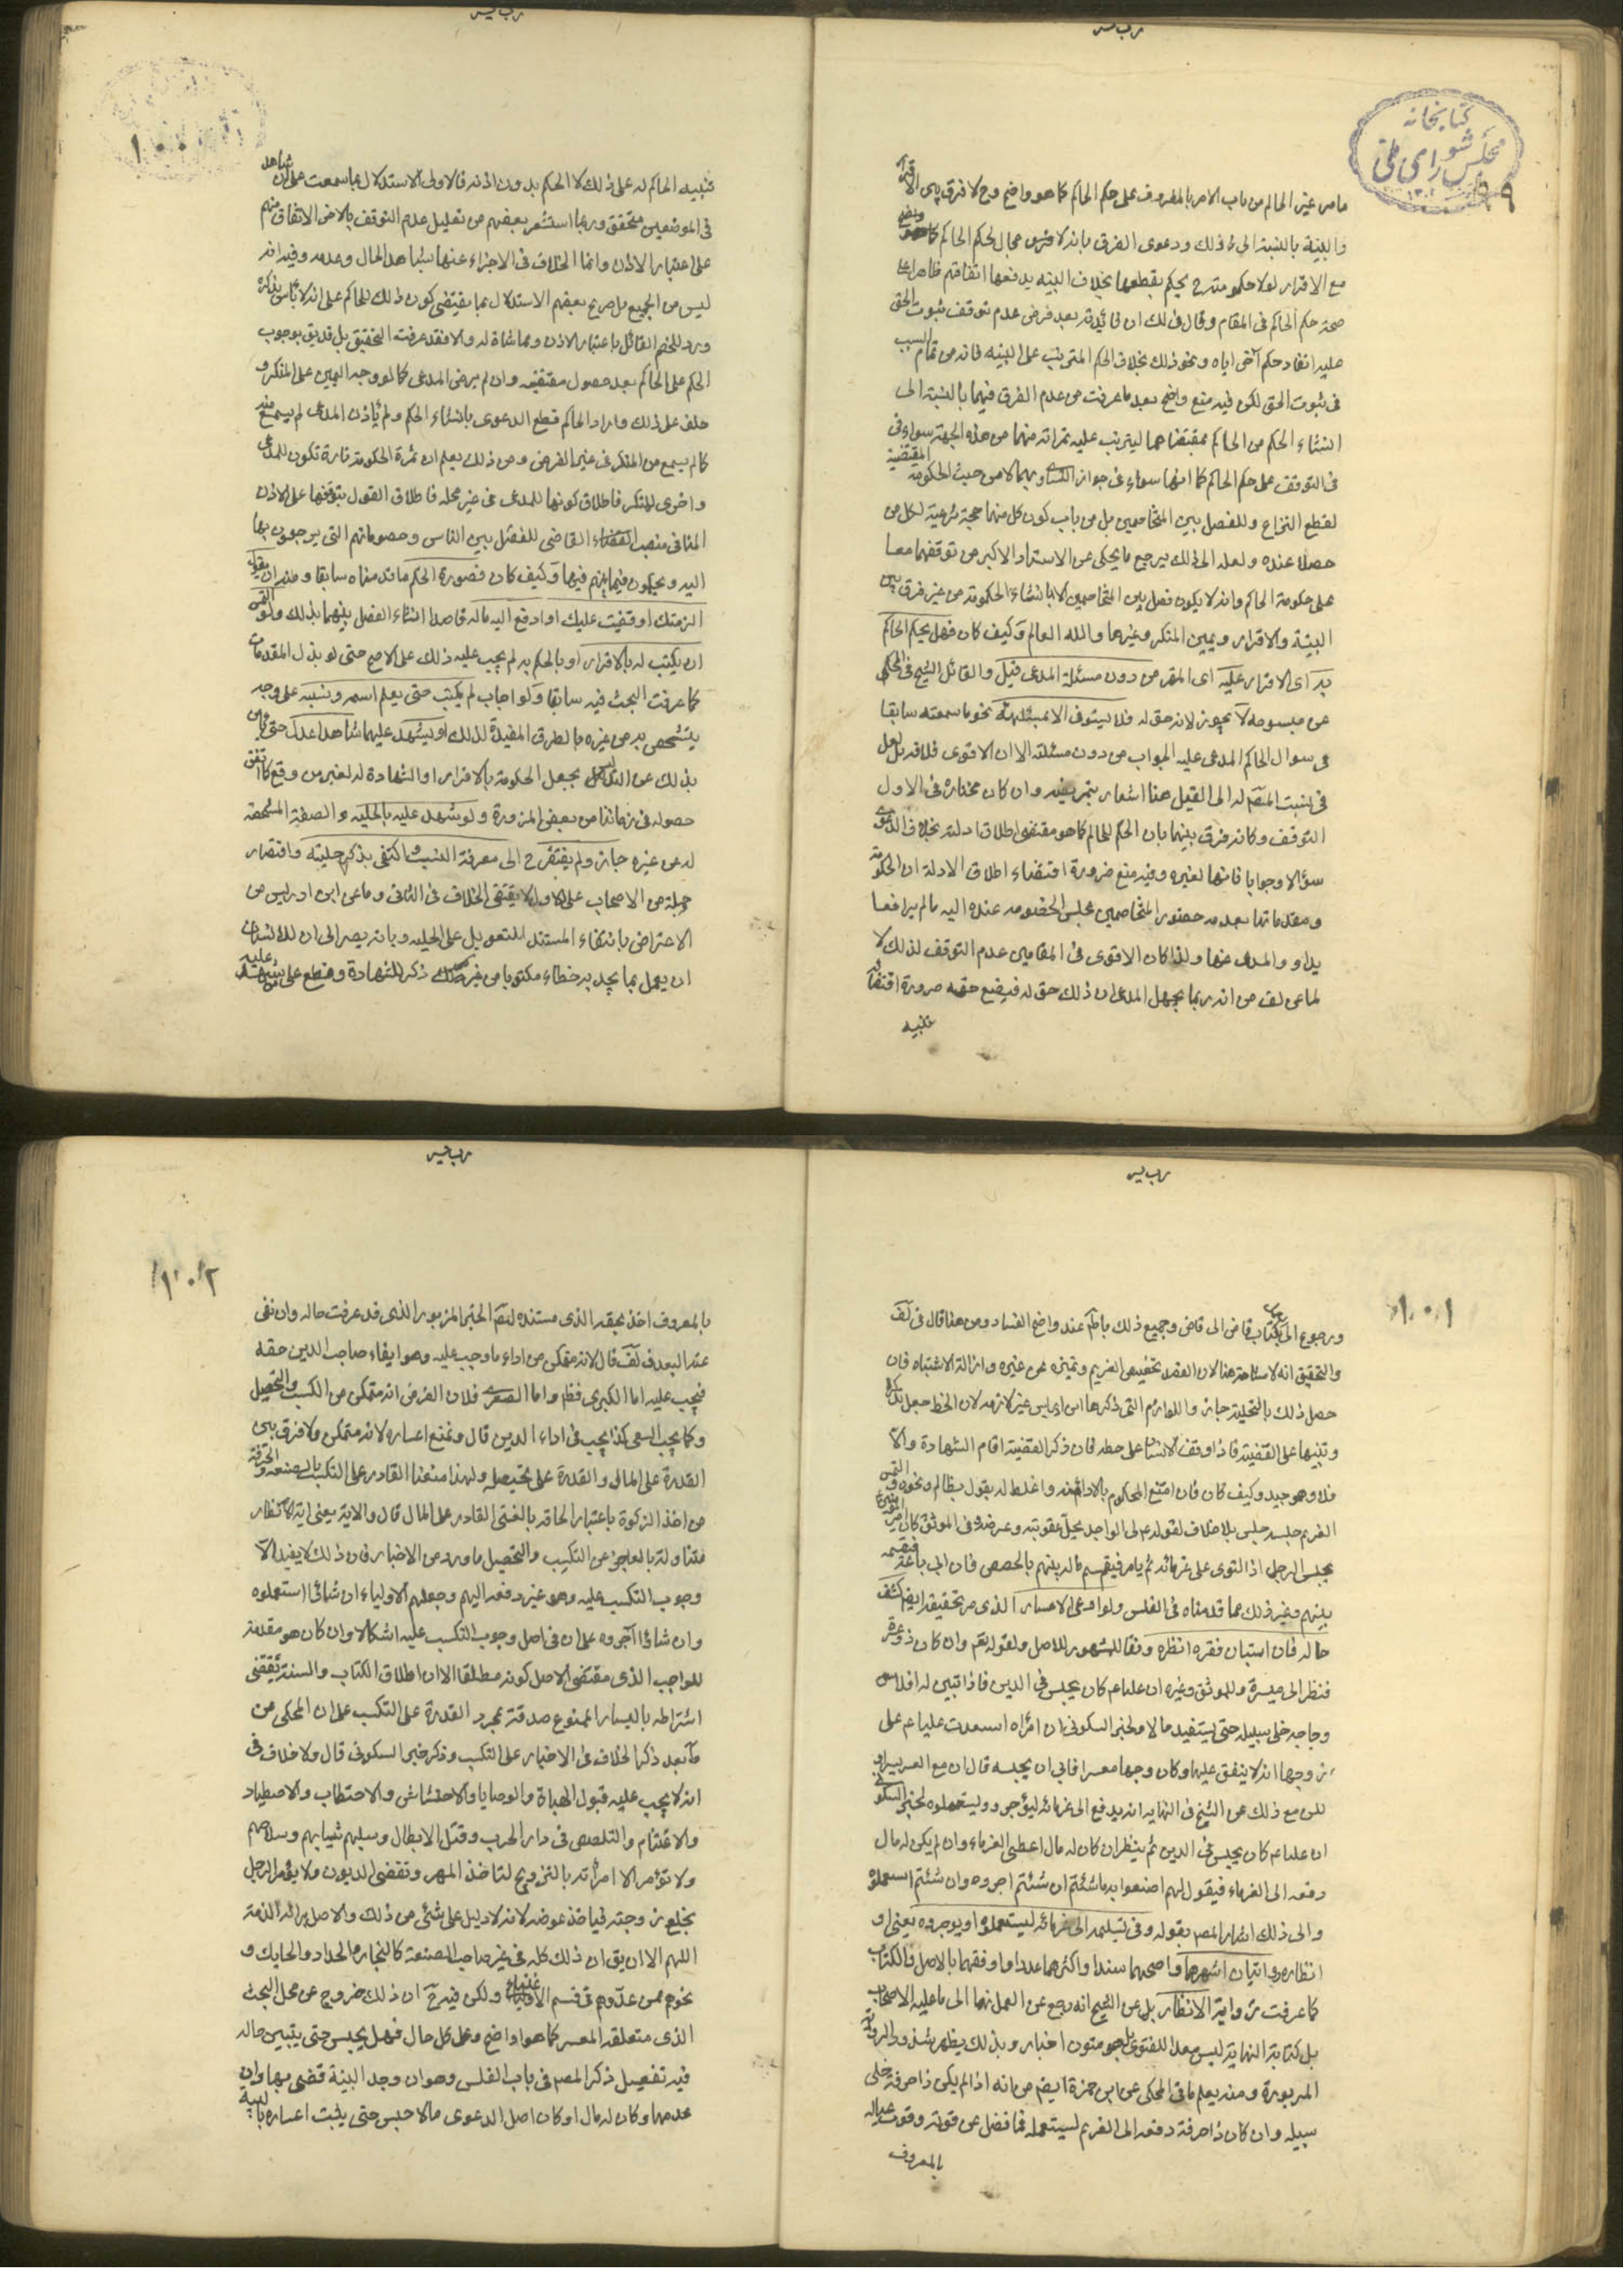 كتابخانه
مجلس شورای ملی
٩٩
ما من غير الحاكم من باب الامر بالمعروف على حكم الحاكم كما هو واضح وح لا فرق بين الاقرار
والبينة بالنسبة الى ذلك ودعوى الفرق بانه لا مجال لحكم الحاكم
مع الاقرار بخلاف البينه يدفعها اتفاقهم ظاهرا على
صحة حكم الحاكم فى المقام وقال فى لك ان فائدته بعد فرض عدم توقف ثبوت الحق
عليه انفاذ حكم آخر اياه ونحو ذلك بخلاف الحكم المترتب على البينه فانه من تمام السبب
فى ثبوت الحق لكن فيه منع واضح بعد ما عرفت من عدم الفرق فيهما بالنسبة الى
انشاء الحكم من الحاكم بمقتضاهما ليترتب عليه ثمراته منهما من هذه الجهة سواء فى
فى التوقف على حكم الحاكم كما انهما سواء فى جواز بهما لا من حيث الحكومة المقتضية
لقطع النزاع وللفصل بين المتخاصمين بل من باب كون كل منهما حجة شرعية لكل من
حصلا عنده ولعله الى ذلك يرجع ما يحكى عن الاستاد الاكبر من توقفهما معا
على حكومة الحاكم وانه لا يكون فصل بين المتخاصمين الا بانشاء الحكومة من غير فرق بين
البينة والاقرار ويمين المنكر وغيرها والله العالم وكيف كان فهل يحكم الحاكم
به اى الاقرار عليه اى المقر من دون مسئلة المدعى قيل والقائل الشيخ فى المحكى
عن مبسوطه لا يجوز لانه حق له فلا يستوفى الا بمسئلته نحو ما سمعته سابقا
فى سوال الحاكم المدعى عليه الجواب من دون مسئلته الا ان الاقوى خلافه بل لعل
فى نسبت المصنف له الى القيل هنا اشعار بتمريضه وان كان مختاره فى الاول
التوقف وكانه فرق بينهما بان الحكم للحاكم كما هو مقتضى اطلاق ادلته بخلاف الدعوى
سؤالا وجوابا فانها لغيره وفيه منع ضرورة اقتضاء اطلاق الادلة ان الحكومة
ومقدماتها بعد حضور المتخاصمين مجلس الخصومه عنده اليه ما لم يرافعا
والمدعى عنها ولذا كان الاقوى فى المقامين عدم التوقف لذلك لا
لما عن لف من انه ربما يجهل المدعى ان ذلك حق له فيضيع حقه ضرورة اقتضائه
تنبيه
١٠٠
تنبيه الحاكم له على ذلك لا الحكم بدون اذنه فالاولى الاستدلال بما سمعت على ان شاهد
فى الموضعين متحقق وربما استشعر بعضهم من تعليل عدم التوقف بالاذن الاتفاق منهم
على اعتبار الاذن وانما الخلاف فى الاجزاء عنها بشاهد الحال وعدمه وفيه انه
ليس من الجميع بل صريح بعضهم الاستدلال بما يقتضى كون ذلك للحاكم على انه لا باس بذكره
ورد للخصم القائل باعتبار الاذن ومماشاة له والا فقد عرفت التحقيق بل قد يق بوجوب
الحكم على الحاكم بعد حصول مقتضيه وان لم يرض المدعى كما لو وجه اليمين على المنكر و
حلف على ذلك واراد الحاكم قطع الدعوى بانشاء الحكم ولم يأذن المدعى لم يسمع منه
كما لم يسمع من المنكر فى غير الفرض ومن ذلك يعلم ان ثمرة الحكومة تارة تكون للمدعى
واخرى للمنكر فاطلاق كونها للمدعى فى غير محله فاطلاق القول بتوقفها على الاذن
المنافى منصب القضاء القاضى للفصل بين الناس وخصوماتهم التى يرجعون بها
اليه ويحكمون فيما بينهم فيها وكيف كان فصورة الحكم ما قدمناه سابقا ومنه ان يقول
الزمتك او قضيت عليك او ادفع اليه ماله قاصدا انشاء الفصل بينهما بذلك ولو التمس
ان يكتب له بالاقرار او بالحكم به لم يجب عليه ذلك على الاصح حتى لو بذل المقدمات
كما عرفت البحث فيه سابقا ولو اجاب لم يكتب حتى يعلم اسمه ونسبه على وجه
يتشخص به من غيره بالطرق المفيدة لذلك او يشهد عليهما شاهدا عدل حتى يامن
بذلك عن التدليس بجعل الحكومة بالاقرار او الشهادة له لغير من وقع كما اتفق
حصوله فى زماننا من بعض المزورة ولو شهد عليه بالحلية والصفة المشخصة
له عن غيره جاز ولم يفتقر ح الى معرفة النسب واكتفى بذكر حليته واقتصار
جملة من الاصحاب على الاول لا يقتضى الخلاف فى الثانى وما عن ابن ادريس من
الاعتراض بانتفاء المستند للتعويل على الحليه وبانه يصير الى ان للانسان
ان يعمل بما يجد به خطا مكتوبا من غير ذكر للشهادة وقطع على من شهد عليه
١٠١
ورجوع الى كتاب قاض الى قاض وجميع ذلك باطل عند واضح الفساد ومن هنا قال فى لف
والتحقيق انه لا مشاحة هنا لان القصد تخصيص الغريم وتميزه عن غيره وازالة الاشتباه فان
حصل ذلك بالتحلية جاز واللوازم التى ذكرها ابن ادريس غير لازمه لان الخط جعل تذكرة
وتنبيها على القضية فاذا وقف الانسان على خطه فان ذكر القضية اقام الشهادة والا
فلا وهو جيد وكيف كان فان امتنع المحكوم بالاداء واغلظ له بقول يا ظالم ونحوه ولو التمس
الغريم حبسه حبس بلا خلاف لقوله ع لى الواجد يحل عقوبته وعرضه وفى الموثق كان امير المؤمنين ع
يحبس الرجل اذا التوى على غرمائه ثم يامر فيقسم ماله بينهم بالحصص فان ابى باعه فيقسمه
بينهم وغير ذلك مما قدمناه فى الفلس ولو ادعى الاعسار الذى مر تحقيقه ايضا كشف
حاله فان استبان فقره انظره وفقا للمشهور للاصل ولقوله تعالى وان كان ذو عسرة
فنظرة الى ميسرة وللموثق وغيره ان عليا ع كان يحبس فى الدين فاذا تبين له افلاس
وحاجة خلى سبيله حتى يستفيد مالا ولخبر السكونى ان امراه استعدت عليا ع على
زوجها انه لا ينفق عليها وكان زوجها معسرا فابى ان يحبسه قال ان مع العسر يسرا و
لكن مع ذلك عن الشيخ فى النهايه انه يدفع الى غرمائه ليؤجروه وليستعملوه لخبر السكونى
ان عليا ع كان يحبس فى الدين ثم ينظر ان كان له مال اعطى الغرماء وان لم يكن له مال
دفعه الى الغرماء فيقول لهم اصنعوا به ما شئتم ان شئتم اجروه وان شئتم استعملوه
والى ذلك اشار المصنف بقوله وفى تسليمه الى غرمائه ليستعملوه او يوجروه يعنى او
انظاره روايتان اشهرهما واصحهما سندا واكثرهما عددا واوفقهما بالاصل والكتاب
كما عرفت رواية الانظار بل عن الشيخ انه رجع عن العمل بها الى ما عليه الاصحاب
بل كتابه النهاية ليس معدا للفتوى بل هو متون اخبار وبذلك يظهر شذوذ الرواية
المزبورة ومنه يعلم ما فى المحكى عن ابن حمزة ايضا من انه اذا لم يكن ذا حرفة خلى
سبيله وان كان ذا حرفة دفعه الى الغريم ليستعمله فما فضل عن قوته وقوت عياله
بالمعروف
١٠٢
بالمعروف اخذ بحقه الذى مستنده النص الخبر المزبور الذى قد عرفت حاله وان نفى
عنه البعد فى لف قال لانه متمكن من اداء ما وجب عليه وهو ايفاء صاحب الدين حقه
فيجب عليه اما الكبرى فظ واما الصغرى فلان الفرض انه متمكن من الكسب والتحصيل
وكما يجب السعى كذا يجب فى اداء الدين قال ونمنع اعساره لانه متمكن ولا فرق بين
القدرة على المال والقدرة على تحصيله ولهذا منعنا القادر على التكسب بالصنعه والحرفة
من اخذ الزكوة باعتبار الحاقه بالغنى القادر على المال قال والاية يعنى اية الانظار
متناولة بالعاجز عن التكسب والتحصيل ما ورد من الاخبار فان ذلك لا يفيد الا
وجوب التكسب عليه وهو غير دفعه اليهم وجعلهم الاولياء ان شاؤا استعملوه
وان شاؤا آجروه على ان فى اصل وجوب التكسب عليه اشكالا وان كان هو مقدمة
للواجب الذى مقتضى الاصل كونه مطلقا الا ان اطلاق الكتاب والسنة يقتضى
اشتراطه باليسار الممنوع صدقة بمجرد القدرة على التكسب على ان المحكى عن
ط بعد ذكر الخلاف فى الاخبار على التكسب وذكر خبر السكونى قال ولا خلاف فى
انه لا يجب عليه قبول الهبات والوصايا والاحتشاش والاحتطاب والاصطياد
والاغتنام والتلصص فى دار الحرب وقتل الابطال وسلبهم ثيابهم وسلاحهم
ولا تؤمر الامرأته بالتزويج لتاخذ المهر وتقضى الديون ولا يؤمر الرجل
بخلع زوجته فياخذ عوضه لانه لا دليل على شئى من ذلك والاصل برائه الذمة
اللهم الا ان يق ان ذلك كله فى غير صاحب الصنعة كالنجار والحداد والحايك و
نحوهم ممن عدوهم فى قسم الاغنياء ولكن فيه ح ان ذلك خروج عن محل البحث
الذى متعلقه المعسر كما هو واضح وعلى كل حال فهل يحبس حتى يتبين حاله
فيه تفصيل ذكر المصنف فى باب الفلس وهو ان وجد البينة قضى بها وان
عدمها وكان له مال او كان اصل الدعوى مالا حبس حتى يثبت اعساره بالبينة